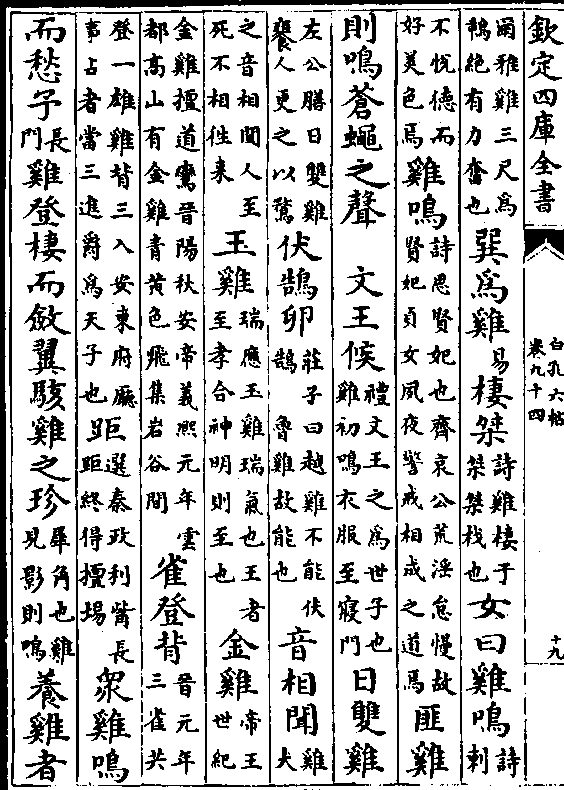 欽定四庫全書
白孔六帖
卷九十四
十九
爾雅雞三尺為鶤絶有力奮也巽為雞易棲桀詩雞棲于桀桀杙也女曰雞鳴詩刺
不恱德而好美色焉雞鳴詩思賢妃也齊哀公荒淫怠慢故賢妃貞女夙夜警戒相成之道焉匪雞
則鳴蒼蠅之聲 文王候禮文王之為世子也雞初鳴衣服至寢門日雙雞
左公膳日雙雞饔人更之以鶩伏鵠卵莊子曰越雞不能伏鵠 魯雞故能也音相聞雞犬
之音相聞人至死不相徃来玉雞瑞應玉雞瑞氣也王者至孝合神明則至也金雞帝王世紀
金雞擅道鸞晉陽秋安帝義熙元年雲都高山有金雞青黄色飛集岩谷間雀登背晉元年三雀共
登一雄雞背三入安東府廳事占者當三進爵為天子也距選秦政利觜長距終得擅場眾雞鳴
而愁予長門雞登棲而斂翼駭雞之珍犀角也雞見影則鳴養雞者